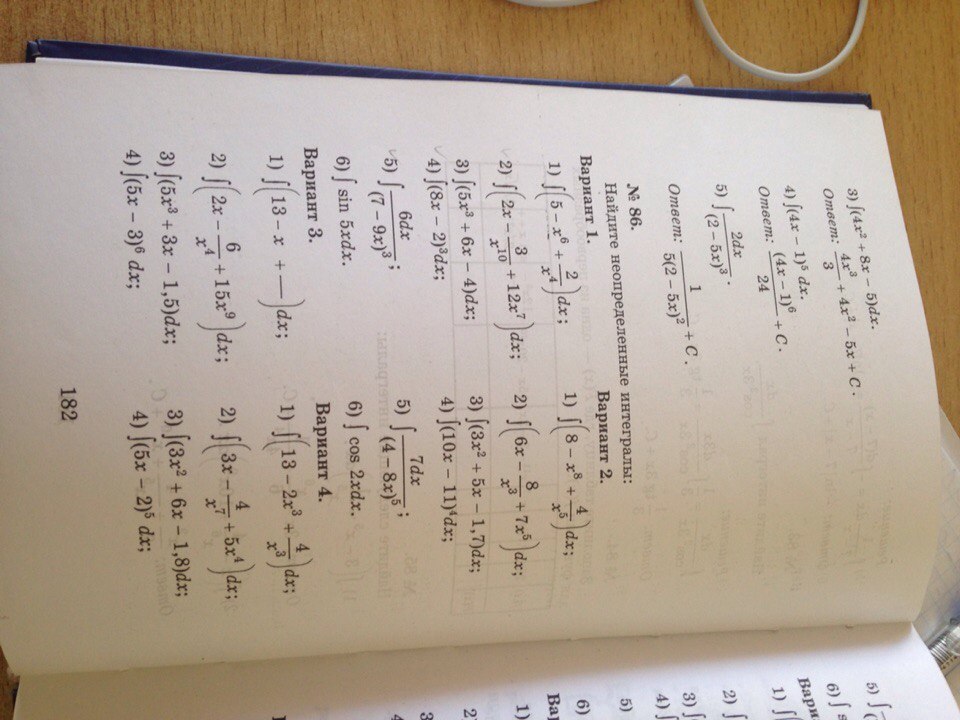 3) ∫(4x² + 8x − 5)dx.
Ответ: 4x³/3 + 4x² − 5x + C.
4) ∫(4x − 1)⁵ dx.
Ответ: (4x − 1)⁶/24 + C.
5) ∫ 2dx/(2 − 5x)³.
Ответ: 1/5(2 − 5x)² + C.
№ 86.
Найдите неопределенные интегралы:
Вариант 1.
1) ∫(5 − x⁶ + 2/x⁴)dx;
2) ∫(2x − 3/x¹⁰ + 12x⁷)dx;
3) ∫(5x³ + 6x − 4)dx;
4) ∫(8x − 2)³dx;
5) ∫ 6dx/(7 − 9x)³;
6) ∫ sin 5xdx.
Вариант 2.
1) ∫(8 − x⁸ + 4/x⁵)dx;
2) ∫(6x − 8/x³ + 7x⁵)dx;
3) ∫(3x² + 5x − 1,7)dx;
4) ∫(10x − 11)⁴dx;
5) ∫ 7dx/(4 − 8x)⁵;
6) ∫ cos 2xdx.
Вариант 3.
1) ∫(13 − x + —)dx;
2) ∫(2x − 6/x⁴ + 15x⁹)dx;
3) ∫(5x³ + 3x − 1,5)dx;
4) ∫(5x − 3)⁶ dx;
Вариант 4.
1) ∫(13 − 2x³ + 4/x³)dx;
2) ∫(3x − 4/x⁷ + 5x⁴)dx;
3) ∫(3x² + 6x − 1,8)dx;
4) ∫(5x − 2)⁵ dx;
182
5)
6)
1)
2)
3)
4)
5)
6)
1)
2)
3
4